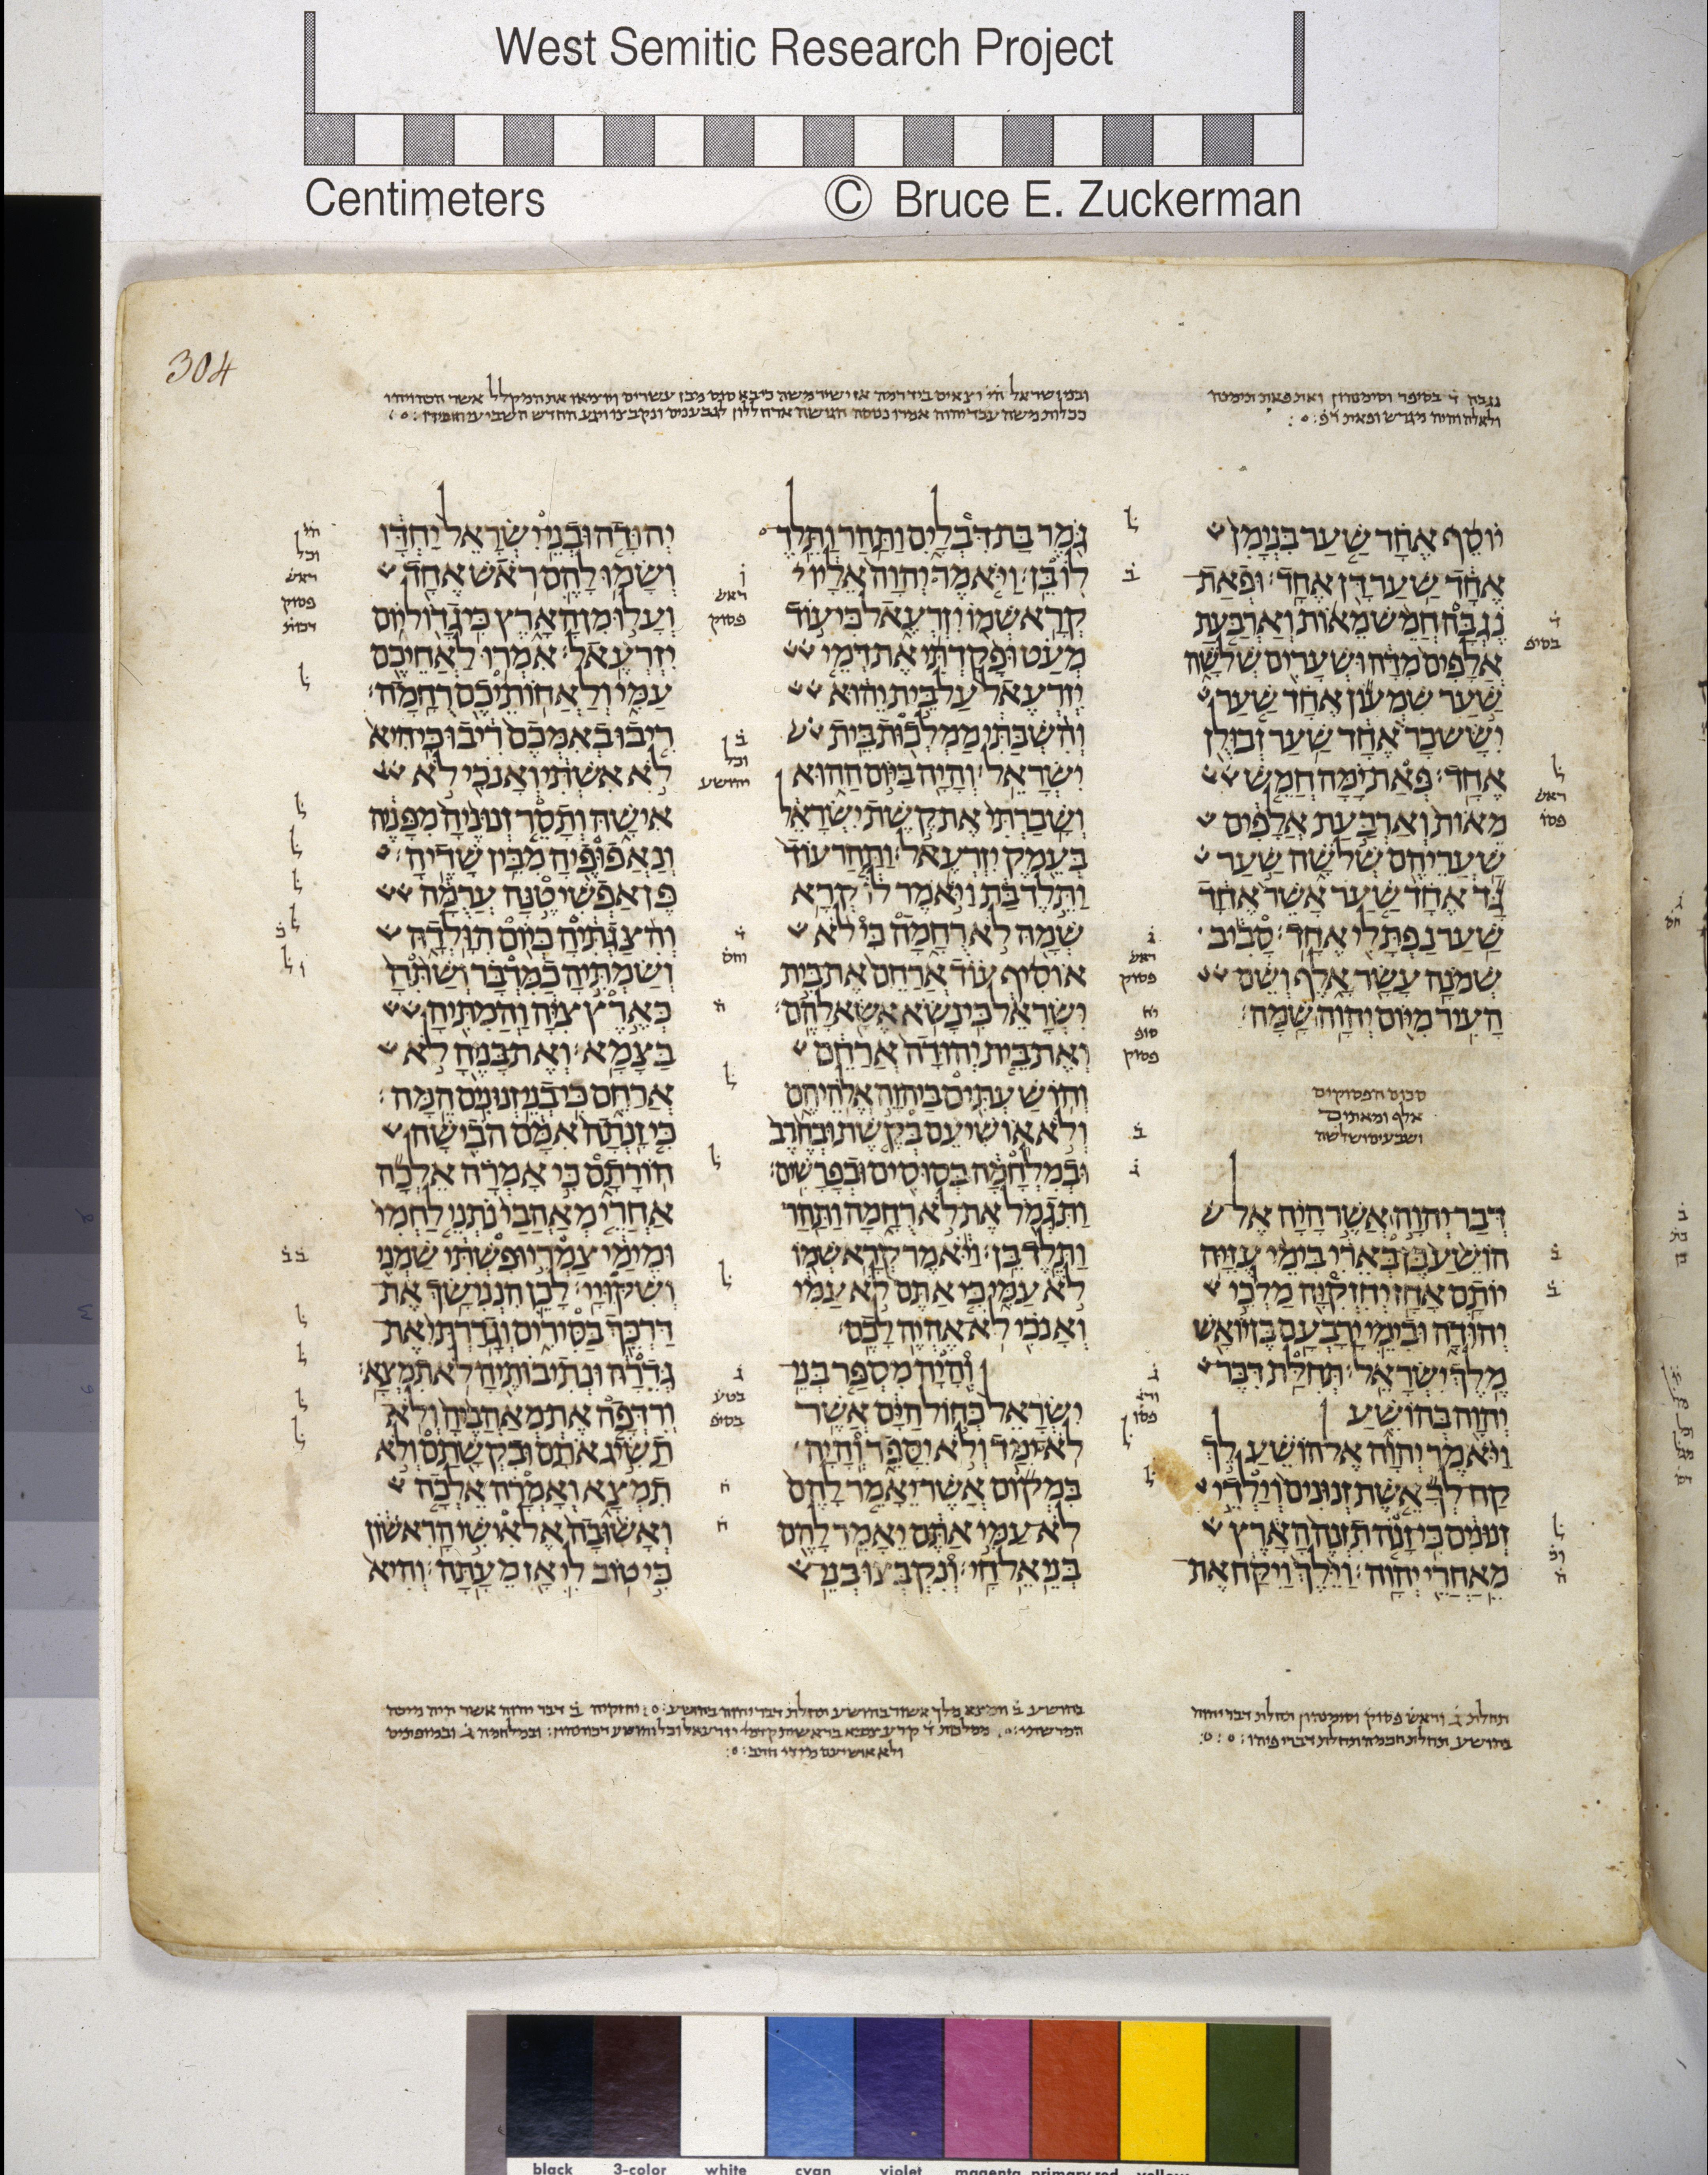 West Semitic Research Project
Centimeters
© Bruce E. Zuckerman
304
נגבה ד בסיפר וסימנהון ואת פאת תימנה
יוסף אחד שער בנימן
אחד שער דן אחד׃ ופאת
נגבה חמש מאות וארבעת
אלפים מדה ושערים שלשה
שער שמעון אחד שער
יששכר אחד שער זבולן
אחד׃ פאת ימה חמש
מאות וארבעת אלפים
שעריהם שלשה שער
גד אחד שער אשר אחד
שער נפתלי אחד׃ סביב
שמנה עשר אלף ושם
העיר מיום יהוה שמה׃
סכום הפסוקים
אלף ומאתים
ושבעים ושלשה
דבר יהוה אשר היה אל
הושע בן בארי בימי עזיה
יותם אחז יחזקיה מלכי
יהודה ובימי ירבעם בן יואש
מלך ישראל׃ תחלת דבר
יהוה בהושע
ויאמר יהוה אל הושע לך
קח לך אשת זנונים וילדי
זנונים כי זנה תזנה הארץ
מאחרי יהוה׃ וילך ויקח את
גמר בת דבלים ותהר ותלד
לו בן׃ ויאמר יהוה אליו
קרא שמו יזרעאל כי עוד
מעט ופקדתי את דמי
יזרעאל על בית יהוא
והשבתי ממלכות בית
ישראל׃ והיה ביום ההוא
ושברתי את קשת ישראל
בעמק יזרעאל׃ ותהר עוד
ותלד בת ויאמר לו קרא
שמה לא רחמה כי לא
אוסיף עוד ארחם את בית
ישראל כי נשא אשא להם׃
ואת בית יהודה ארחם
והושעתים ביהוה אלהיהם
ולא אושיעם בקשת ובחרב
ובמלחמה בסוסים ובפרשים׃
ותגמל את לא רחמה ותהר
ותלד בן׃ ויאמר קרא שמו
לא עמי כי אתם לא עמי
ואנכי לא אהיה לכם׃
והיה מספר בני
ישראל כחול הים אשר
לא ימד ולא יספר והיה
במקום אשר יאמר להם
לא עמי אתם יאמר להם
בני אל חי׃ ונקבצו בני
יהודה ובני ישראל יחדו
ושמו להם ראש אחד
ועלו מן הארץ כי גדול יום
יזרעאל׃ אמרו לאחיכם
עמי ולאחותיכם רחמה׃
ריבו באמכם ריבו כי היא
לא אשתי ואנכי לא
אישה ותסר זנוניה מפניה
ונאפופיה מבין שדיה׃
פן אפשיטנה ערמה
והצגתיה כיום הולדה
ושמתיה כמדבר ושתה
כארץ ציה והמתיה
בצמא׃ ואת בניה לא
ארחם כי בני זנונים המה׃
כי זנתה אמם הבישה
הורתם כי אמרה אלכה
אחרי מאהבי נתני לחמי
ומימי צמרי ופשתי שמני
ושקויי׃ לכן הנני שך את
דרכך בסירים וגדרתי את
גדרה ונתיבותיה לא תמצא׃
ורדפה את מאהביה ולא
תשיג אתם ובקשתם ולא
תמצא ואמרה אלכה
ואשובה אל אישי הראשון
כי טוב לי אז מעתה׃ והיא
תחלת ג וראש פסוק וסימנהון תחלת דבר יהוה
בהושע תחלת חכמה תחלת דברי פיהו
ולא אושיעם
black
3-color
white
cyan
violet
magenta
primary red
yellow